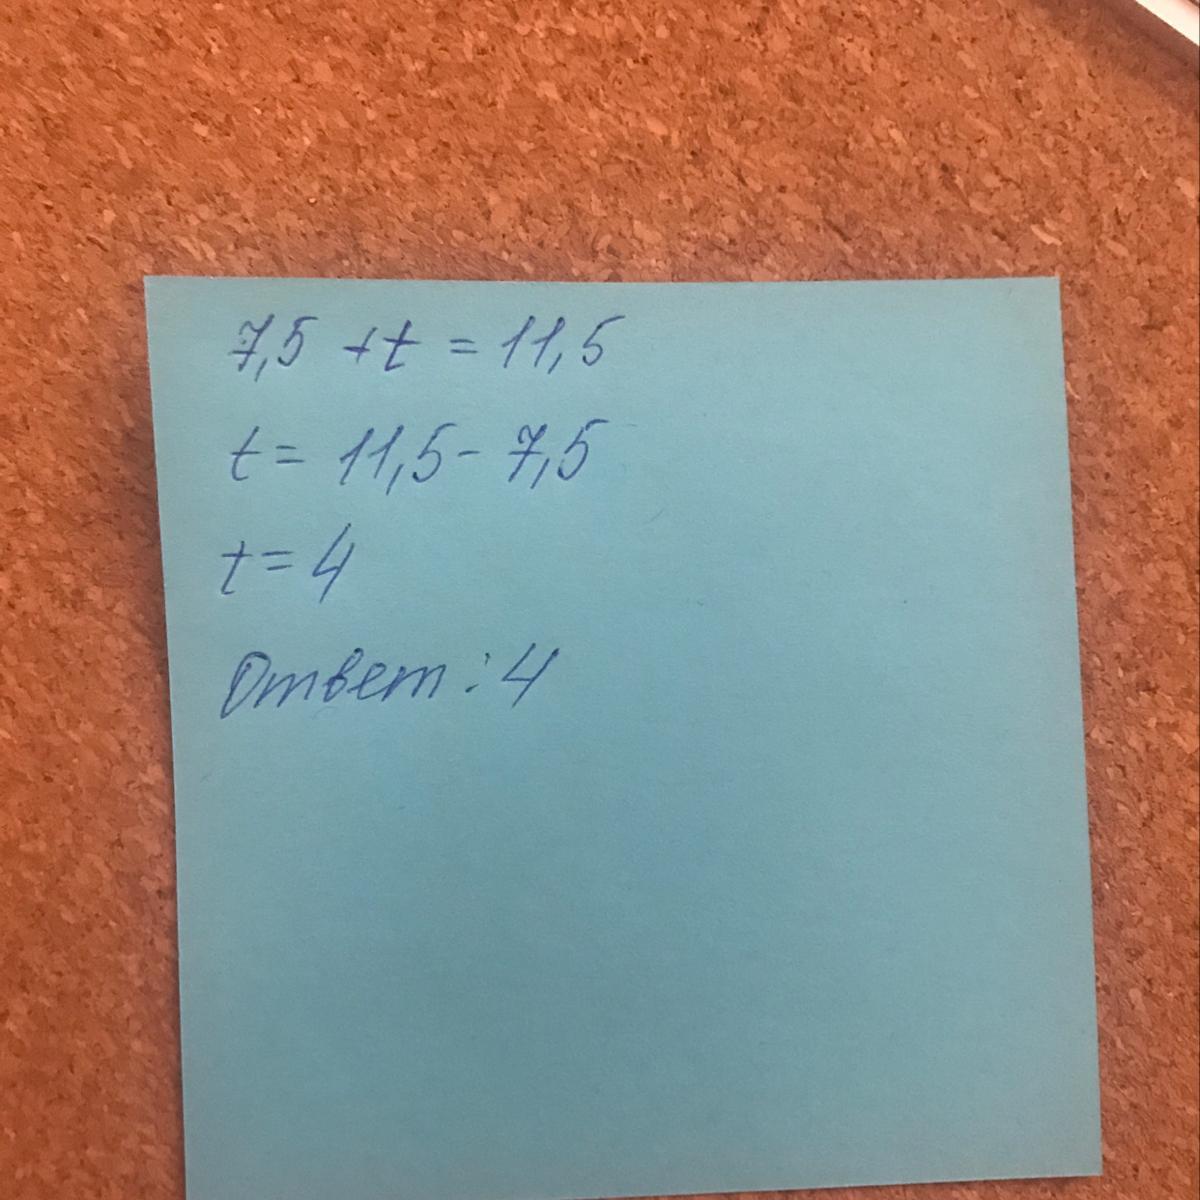 7,5 + t = 11,5
t = 11,5 - 7,5
t = 4
Ответ: 4